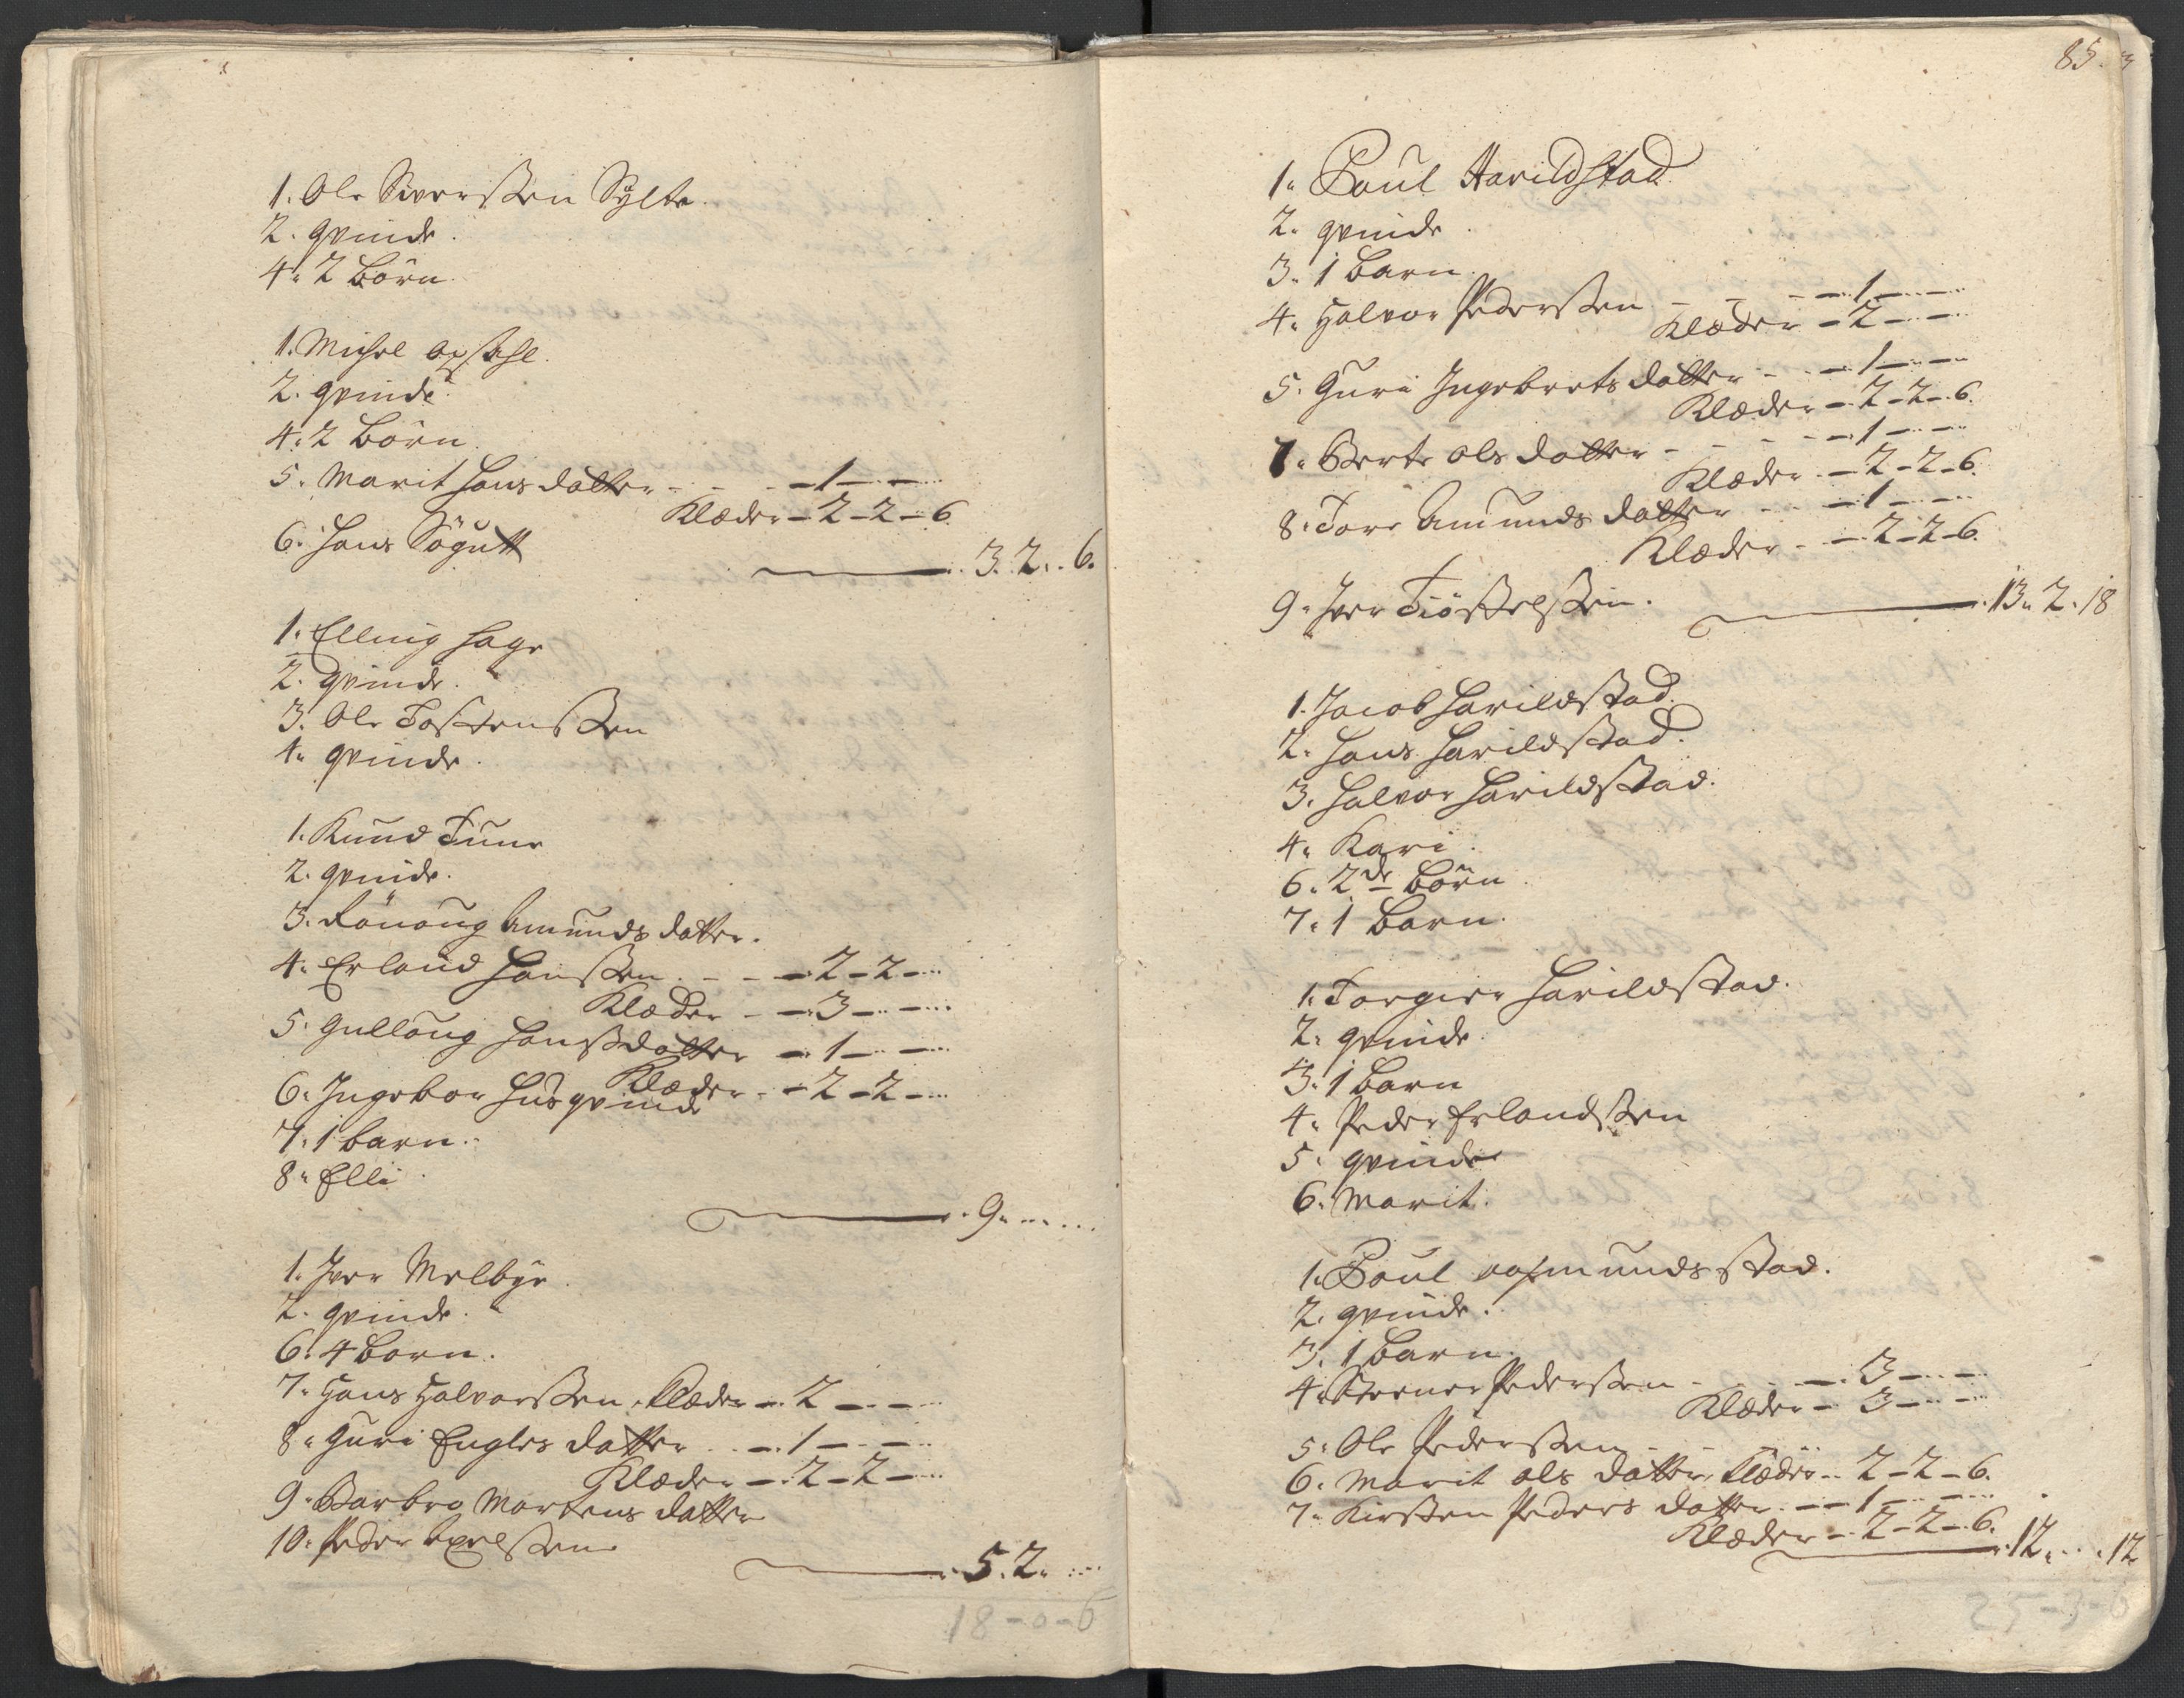 1. Ole Siverssen Sylte.
2. qvinde.
4. 2 börn.
1. Michel Opsahl.
2. qvinde.
4. 2 börn.
5. Marit Hans datter - - - 1 - -
Klæder - 2 - 2 - 6
6. Hans Sögutt
3. 2. 6.
1. Elling Hage
2. qvinde.
3. Ole Tostenssen
4. qvinde.
1. Knud Tune
2. qvinde.
3. Rönoug Amunds datter.
4. Erland Hanssen. - - - 2 - 2 -
Klæder - - 3 - -
5. Gulloug Hansdatter - 1 - -
Klæder - - 2 - 2 -
6. Ingebor Husqvinde
7. 1 barn.
8. Elli.
9. - - -
1. Iver Melbye.
2. qvinde.
6. 4 born.
7. Hans Halvorssen, Klæder - 2 - -
8. Guri Engles datter - - 1 - -
Klæder - 2 - 2 -
9. Barbro Mortens datter
10. Peder Axelssen
5. 2. -
18 - 0 - 6
85.
1. Poul Harildstad
2. qvinde.
3. 1 barn.
4. Halvor Pederssen - - - 1 - -
Klæder - 2 - -
5. Guri Ingebrets datter - - 1 - -
Klæder - 2 - 2 - 6.
7. Berte Ols datter - - - - 1 - -
Klæder - 2 - 2 - 6.
8. Tore Amunds datter - - 1 - -
Klæder - - 2 - 2 - 6.
9. Iver Tiöstelssen.
13. 2. 18
1. Jacob Harildstad.
2. Hans Harildstad.
3. Halvor Harildstad.
4. Kari.
6. 2de börn.
7. 1 barn.
1. Torgier Harildstad.
2. qvinde
3. 1 barn
4. Peder Erlandssen
5. qvinde
6. Marit.
1. Poul Aasmundsstad.
2. qvinde.
3. 1 barn.
4. Steener Pederssen - - - 3 - -
Klæder - 3 - -
5. Ole Pederssen - -
6. Marit Ols datter, Klæder - 2 - 2 - 6.
7. Kirsten Peders datter - - 1 - -
Klæder - 2 - 2 - 6.
12. - . 12